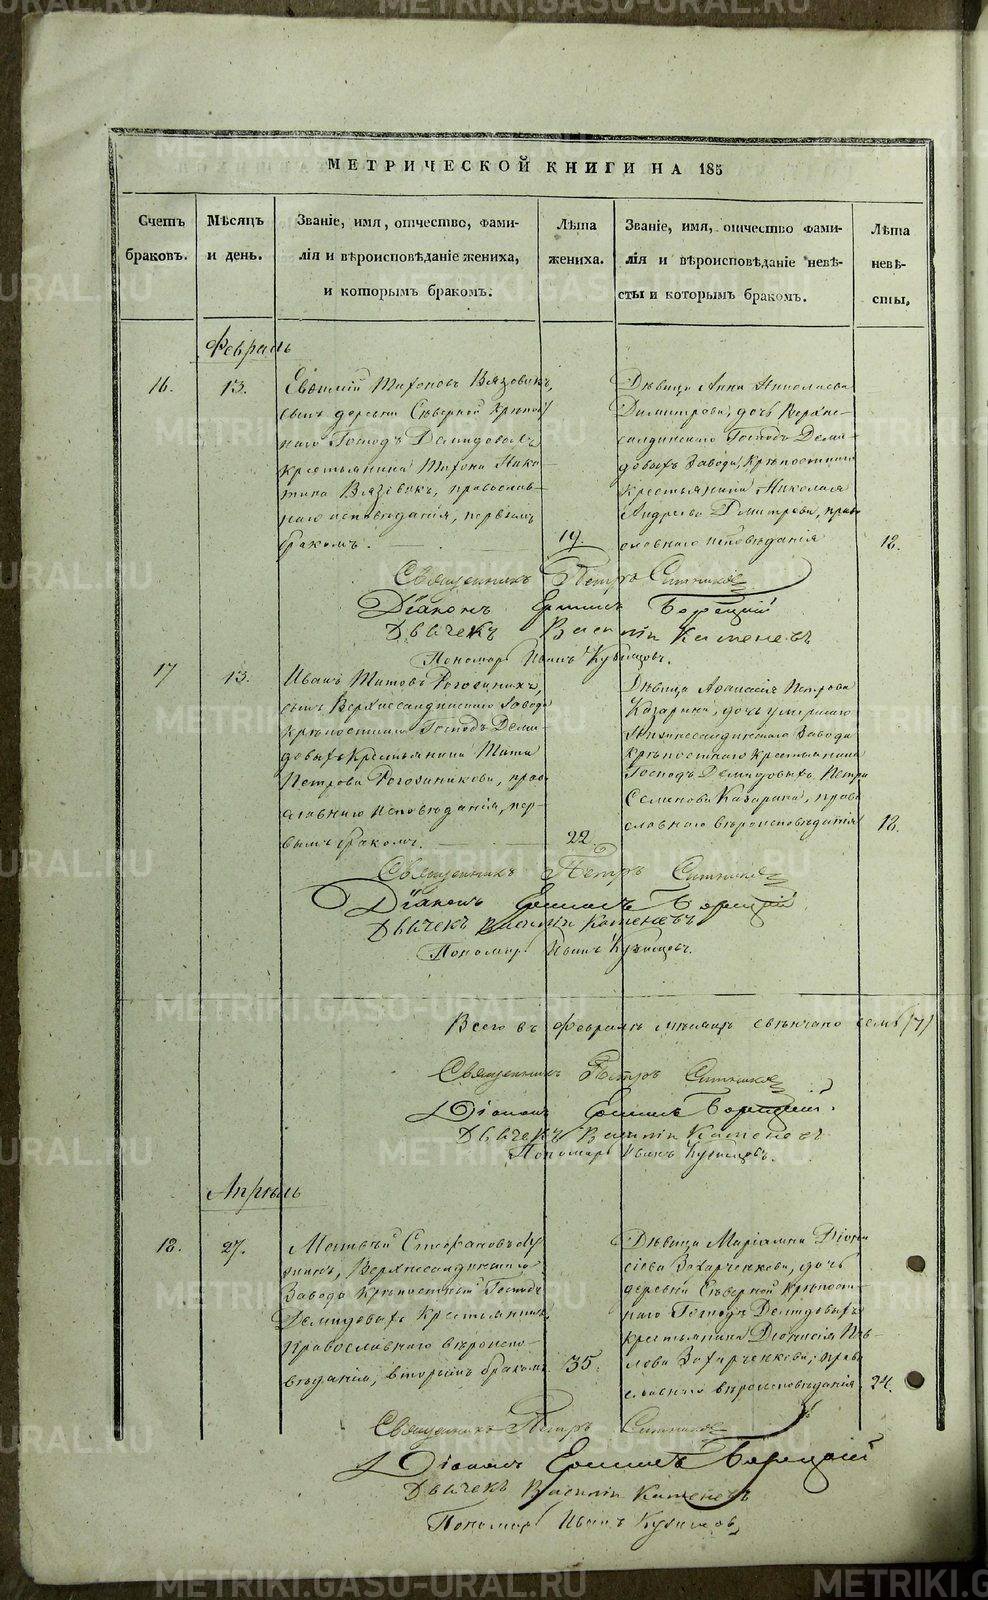 METRIKI.GASO-URAL.RU
МЕТРИЧЕСКОЙ КНИГИ НА 185
Счетъ браковъ.
Мѣсяцъ и день.
Званіе, имя, отчество, фами-
лія и вѣроисповѣданіе жениха,
и которымъ бракомъ.
Лѣта
жениха.
Званіе, имя, отчество фами-
лія и вѣроисповѣданіе невѣ-
сты и которымъ бракомъ.
Лѣта
невѣ-
сты,
Февраль
16.
13.
Тихоновъ
сынъ деревни Сѣверной крѣпост
наго Господъ Демидовыхъ
крестьянина Тихона Ники
тина православ-
наго исповѣданія, первымъ
бракомъ.
19.
Дѣвица Анна Николаева
Димитрова, дочь Верхне-
салдинскаго Господъ Деми-
довыхъ Завода, Крѣпостнаго
крестьянина Николая
Андреева Димитрова, прав
ославнаго исповѣданія
18.
Священникъ Петръ Ситников
Діаконъ Борецкій
Дьячекъ Василій Каменевъ
Пономарь Иванъ Кузнецовъ.
17
13.
Иванъ Титовъ Рогозинихъ,
сынъ Верхнесалдинскаго Завода
крѣпостнаго Господъ Деми-
довыхъ Крестьянина Тита
Петрова Рогозиникова, прав
ославнаго исповѣданія, пер-
вымъ бракомъ.
22.
Дѣвица Афанасія Петрова
Казарина, дочь умершаго
Нижнесалдинскаго Завода
крѣпостнаго крестьянина
Господъ Демидовыхъ, Петра
Семенова Казарина, право
славнаго вѣроисповѣданія
18.
Священникъ Петръ Ситников
Діаконъ Борецкій
Дьячекъ Василій Каменевъ
Пономарь Иванъ Кузнецовъ.
Всего въ Февралѣ мѣсяцѣ свѣнчано семь (7)
Священникъ Петръ Ситников
Діаконъ Борецкій.
Дьячекъ Василій Каменевъ
Пономарь Иванъ Кузнецовъ.
Апрѣль
18.
27.
Матвѣй Стефановъ
Верхнесалдинскаго
Завода Крѣпостный Господъ
Демидовыхъ Крестьянинъ,
Православнаго вѣроиспо-
вѣданія, вторымъ бракомъ
35.
Дѣвица Маріамна Діони
сіева Захарченкова, дочь
деревни Сѣверной Крѣпост-
наго Господъ Демидовыхъ
крестьянина Діонисія
Захарченкова, право
славнаго вѣроисповѣданія
24.
Священникъ Петръ Ситников
Діаконъ Борецкій
Дьячекъ Василій Каменевъ
Пономарь Иванъ Кузнецовъ